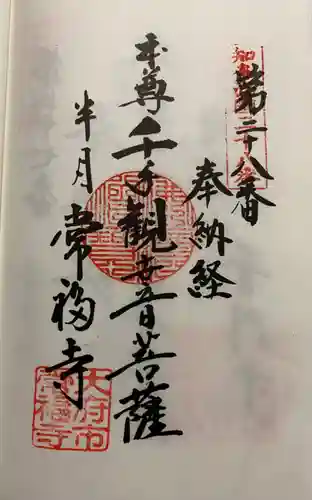 第二十八番
奉納経
本尊
千手観世音菩薩
半月
常福寺
大府市
常福寺